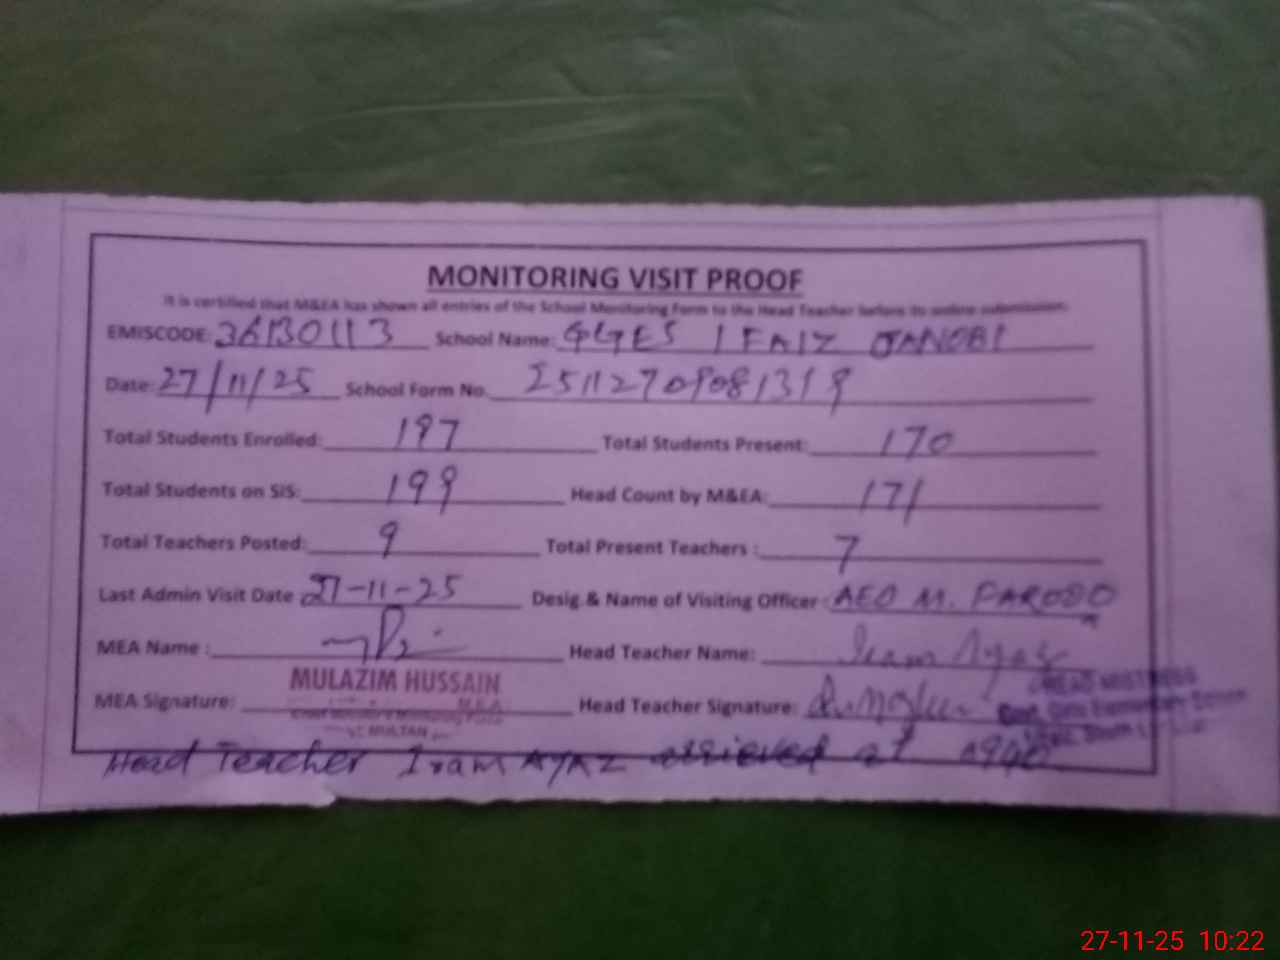 MONITORING VISIT PROOF
It is certified that M&EA has shown all entries of the School Monitoring Form to the Head Teacher before its online submission.
EMISCODE: 36130113 School Name: GGES 1 FAIZ JANOBI
Date: 27/11/25 School Form No.
Total Students Enrolled: 197 Total Students Present: 170
Total Students on SIS: 199 Head Count by M&EA: 171
Total Teachers Posted: 9 Total Present Teachers : 7
Last Admin Visit Date 27-11-25 Desig.& Name of Visiting Officer : AEO M. FAROOQ
MEA Name : Head Teacher Name: Iram Ayaz
MULAZIM HUSSAIN
M.E.A
MULTAN
MEA Signature: Head Teacher Signature:
HEAD MISTRESS
Govt. Girls Elementary School
Head Teacher Iram AYAZ at
27-11-25 10:22